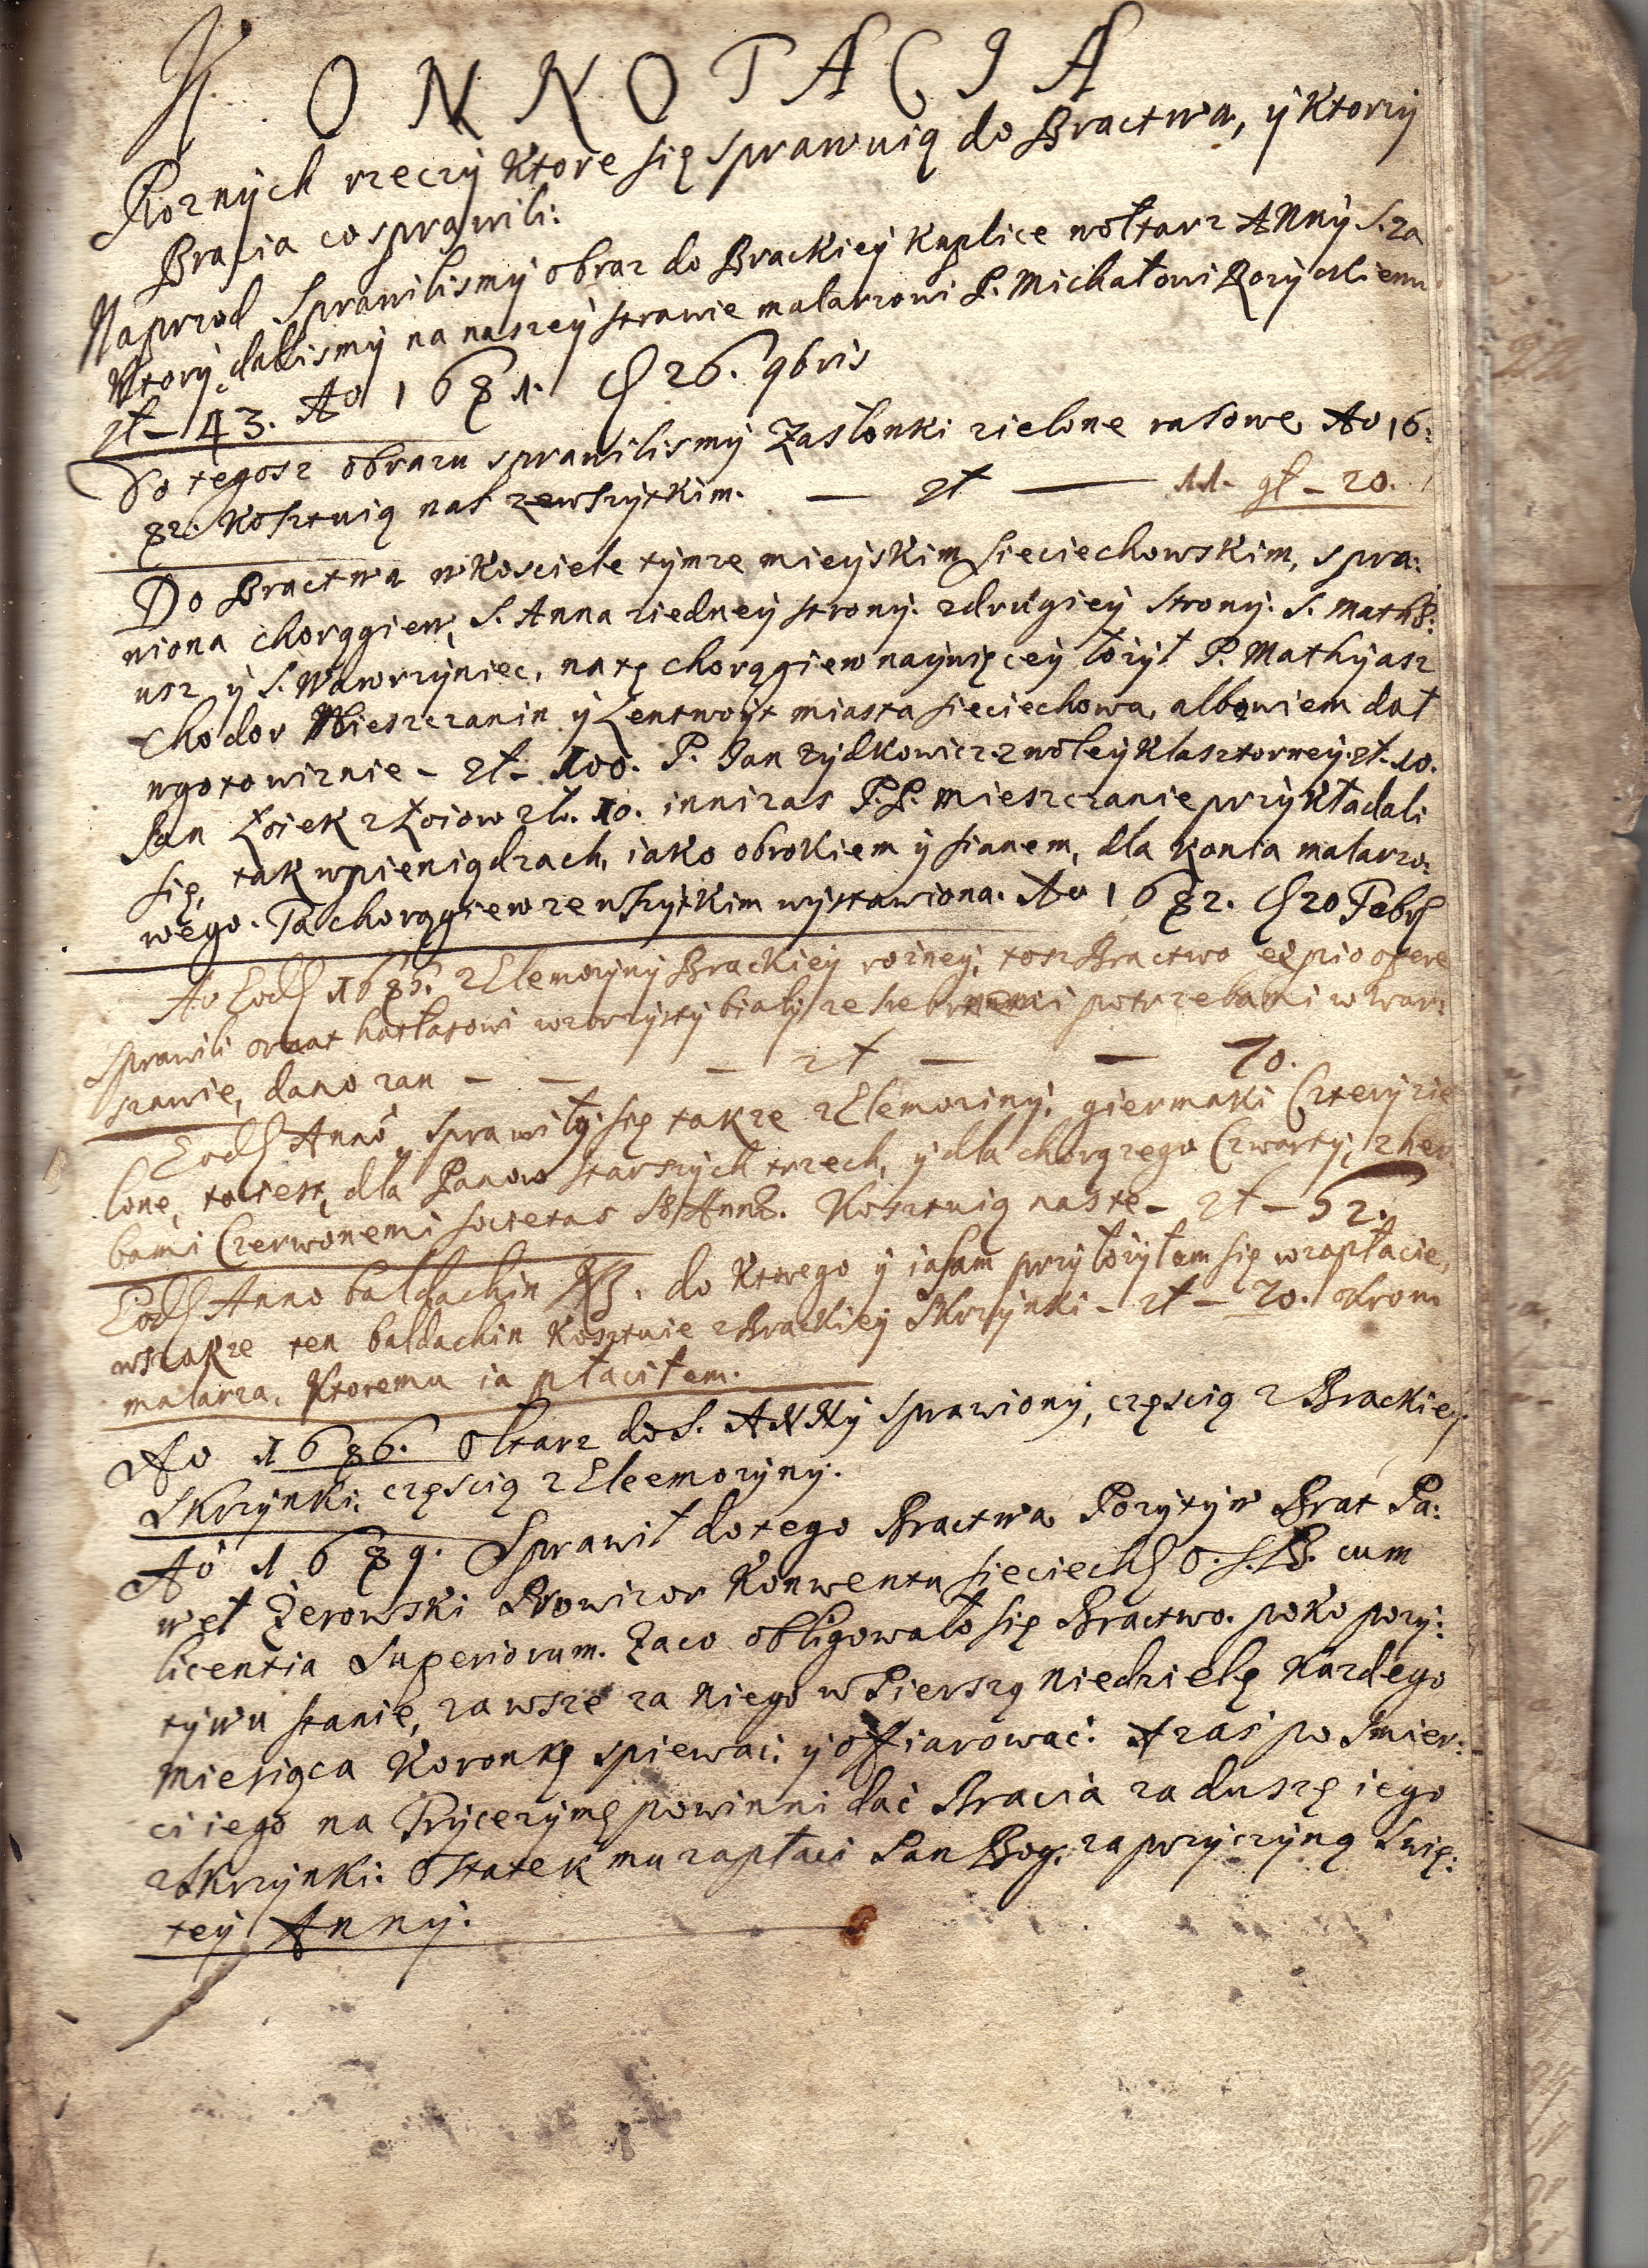 KONNOTACIA
Roznych rzeczy ktore się sprawuią do Bractwa, y ktorzy
Bracia co sprawili:
Naprzod sprawilismy obraz do Brackiey kaplice wołtarz ANNy S. za
ktory dalismy na naszey strawie malarzowi P. Michałowi
zł – 43. Ao 1681. 26. 9bris
Do tegosz obrazu sprawilismy Zasłonki zielone rasowe Ao 16:
82. Kosztuią nas zewszytkim. — zł — 11. gł – 20.
Do Bractwa w Kosciele tymze mieyskim Sieciechowskim, spra:
wiona chorągiew, S. Anna ziedney strony. zdrugiey strony. S. Mathe:
usz y S. Wawrzyniec, na tę chorągiew naywięcey łozył P. Mathyasz
Chodor Mieszczanin y Lentwoyt miasta Sieciechowa, albowiem dał
wgotowiznie – zł – 100. P. Jan Zydkowicz z woley Klasztorney. zł. 10.
Jan Łoiek z Łoiow zł. 10. inni zas P.P. mieszczanie przykładali
się, tak wpieniądzach, iako obrokiem y sianem, dla konia malarzo:
wego. Ta chorągiew ze wszytkim wystawiona. Ao 1682. 20 Febr
Ao Eod 1685. z Elemozyny Brackiey rożney, tosz Bractwo ex pio opere
sprawili ornat hatłasowi wzorzysty biały ze potrzebami w War:
szawie, dano zan – – – zł – – 70.
Eod Anno, sprawiły się takze z Elemoziny, giermaki Cztery zie
lone, to iest, dla Panow starszych trzech, y dla chorązego Czwarty, z her
bami Czerwonemi societas S. Annæ. Kosztuią nas te – zł – 52.
Eod Anno baldachin do ktorego y ia sam przyłozyłem się w zapłacie,
wszakze ten baldachin kosztuie z Brackiey Skrzynki – zł – 70. okrom
malarza, ktoremu ia płaciłem.
Ao 1686. Ołtarz do S. ANNy sprawiony, częscią z Brackiey
Skrzynki, częscią z Eleemozyny.
Ao 1689. Sprawił do tego Bractwa Pozytyw Brat Pa:
weł Zerowski Prowizor Konwentu Sieciech O. S. B. cum
licentia Superiorum. Zaco obligowało się Bractwo. poko pozy:
tywu stanie, zawsze za niego w Pierszą Niedzielę Kazdego
Miesiąca Koronkę spiewać y offiarować. A zas po smier:
ci iego na Trycezymę powinni dać Bracia za duszę iego
z Skrzynki: Ostatek mu zapłaci Pan Bog. za przyczyną Swię:
tey Anny.